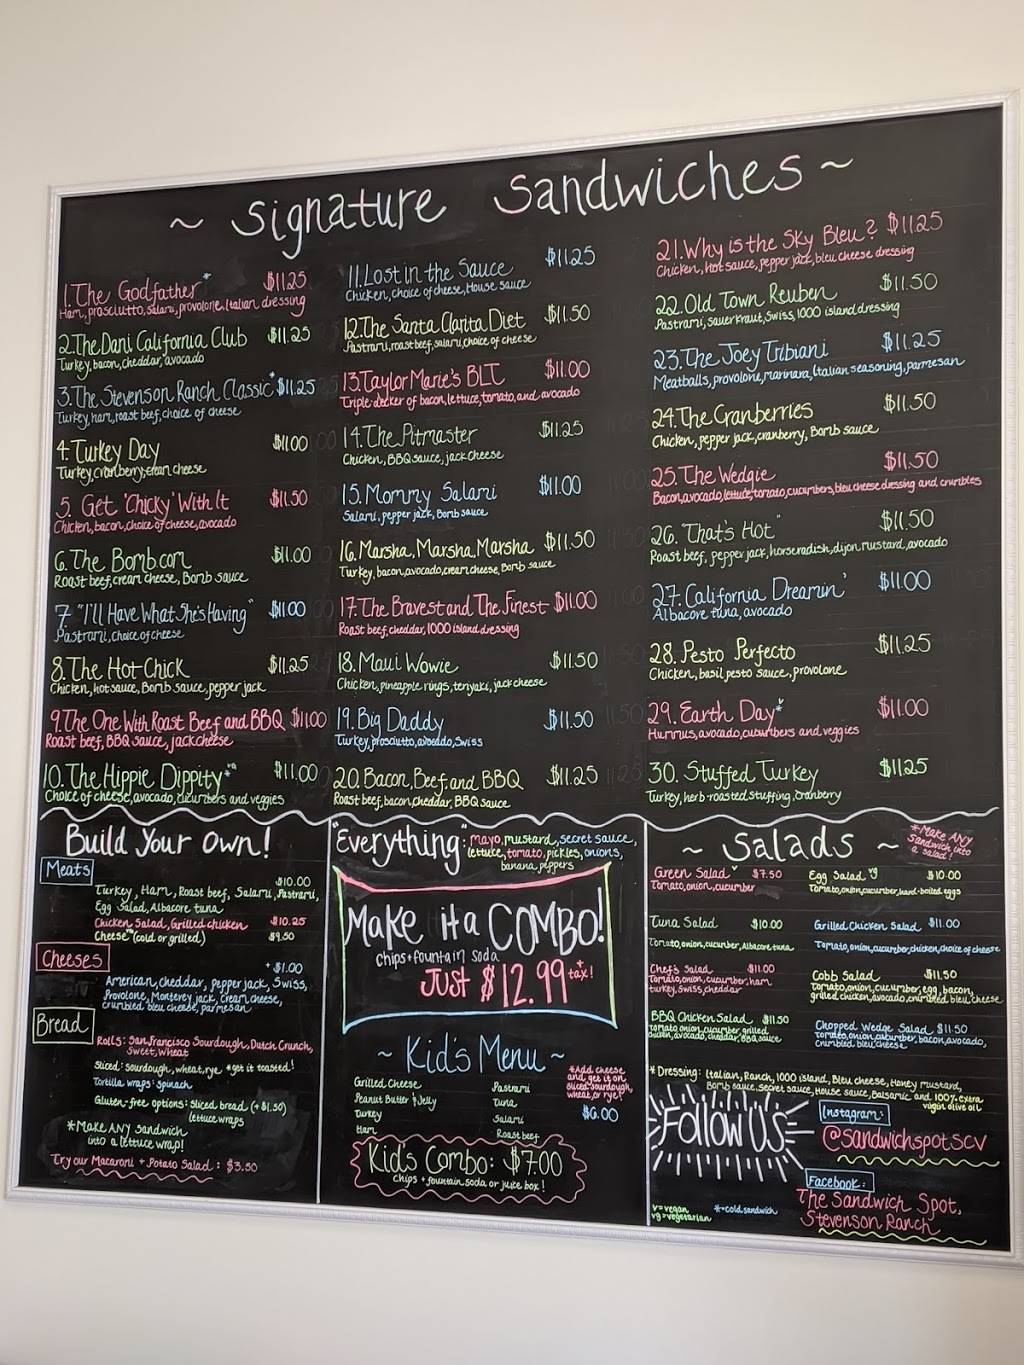 ~ Signature Sandwiches ~
1. The Godfather* $11.25
Ham, prosciutto, salami, provolone, Italian dressing
2. The Dani California Club $11.25
Turkey, bacon, cheddar, avocado
3. The Stevenson Ranch Classic* $11.25
Turkey, ham, roast beef, choice of cheese
4. Turkey Day $11.00
Turkey, cranberry, cream cheese
5. Get 'Chicky' With It $11.50
Chicken, bacon, choice of cheese, avocado
6. The Bomb.com $11.00
Roast beef, cream cheese, Bomb sauce
7. "I'll Have What She's Having" $11.00
Pastrami, choice of cheese
8. The Hot Chick $11.25
Chicken, hot sauce, Bomb sauce, pepper jack
9. The One With Roast Beef and BBQ $11.00
Roast beef, BBQ sauce, jack cheese
10. The Hippie Dippity* $11.00
Choice of cheese, avocado, cucumbers and veggies
11. Lost in the Sauce $11.25
Chicken, choice of cheese, House sauce
12. The Santa Clarita Diet $11.50
Pastrami, roast beef, salami, choice of cheese
13. Taylor Marie's BLT $11.00
Triple-decker of bacon, lettuce, tomato, and avocado
14. The Pitmaster $11.25
Chicken, BBQ sauce, jack cheese
15. Mommy Salami $11.00
Salami, pepper jack, Bomb sauce
16. Marsha, Marsha, Marsha $11.50
Turkey, bacon, avocado, cream cheese, Bomb sauce
17. The Bravest and The Finest $11.00
Roast beef, cheddar, 1000 island dressing
18. Maui Wowie $11.50
Chicken, pineapple rings, teriyaki, jack cheese
19. Big Daddy $11.50
Turkey, prosciutto, avocado, Swiss
20. Bacon, Beef, and BBQ $11.25
Roast beef, bacon, cheddar, BBQ sauce
21. Why is the Sky Bleu? $11.25
Chicken, hot sauce, pepper jack, bleu cheese dressing
22. Old Town Reuben $11.50
Pastrami, sauerkraut, Swiss, 1000 island dressing
23. The Joey Tribiani $11.25
Meatballs, provolone, marinara, Italian seasoning, parmesan
24. The Cranberries $11.50
Chicken, pepper jack, cranberry, Bomb sauce
25. The Wedgie $11.50
Bacon, avocado, lettuce, tomato, cucumbers, bleu cheese dressing and crumbles
26. "That's Hot" $11.50
Roast beef, pepper jack, horseradish, dijon mustard, avocado
27. California Dreamin' $11.00
Albacore tuna, avocado
28. Pesto Perfecto $11.25
Chicken, basil pesto sauce, provolone
29. Earth Day* $11.00
Hummus, avocado, cucumbers and veggies
30. Stuffed Turkey $11.25
Turkey, herb-roasted stuffing, cranberry
Build Your Own!
Meats
$10.00
Turkey, Ham, Roast beef, Salami, Pastrami,
Egg Salad, Albacore tuna
Chicken Salad, Grilled chicken $10.25
Cheese (cold or grilled) $9.50
Cheeses
+ $1.00
American, cheddar, pepper jack, Swiss,
Provolone, Monterey jack, cream cheese,
crumbled bleu cheese, parmesan
Bread
Rolls: San Francisco Sourdough, Dutch Crunch,
Sweet, Wheat
Sliced: sourdough, wheat, rye *get it toasted!
Tortilla wraps: spinach
Gluten-free options: sliced bread (+$1.50)
lettuce wraps
*Make ANY sandwich
into a lettuce wrap!
Try our Macaroni + Potato Salad: $3.50
"Everything": mayo, mustard, secret sauce,
lettuce, tomato, pickles, onions,
banana peppers
Make it a COMBO!
chips + fountain soda
Just $12.99 + tax!
~ Kid's Menu ~
Grilled Cheese
Peanut Butter & Jelly
Turkey
Ham
Pastrami
Tuna
Salami
Roast beef
*Add cheese
and get it on
sliced sourdough,
wheat, or rye!
$6.00
Kid's Combo: $7.00
chips + fountain soda or juice box!
~ Salads ~
*Make ANY
Sandwich into
a salad!
Green Salad v $7.50
Tomato, onion, cucumber
Egg Salad vg $10.00
Tomato, onion, cucumber, hard-boiled eggs
Tuna Salad $10.00
Tomato, onion, cucumber, Albacore tuna
Grilled Chicken Salad $11.00
Tomato, onion, cucumber, chicken, choice of cheese
Chef's Salad $11.00
Tomato, onion, cucumber, ham
turkey, Swiss, cheddar
Cobb Salad $11.50
Tomato, onion, cucumber, egg, bacon,
grilled chicken, avocado, crumbled bleu cheese
BBQ Chicken Salad $11.50
Tomato, onion, cucumber, grilled
bacon, avocado, cheddar, BBQ sauce
Chopped Wedge Salad $11.50
Tomato, onion, cucumber, bacon, avocado,
Crumbled bleu cheese
*Dressing: Italian, Ranch, 1000 island, Bleu cheese, Honey mustard,
Bomb sauce, Secret sauce, House sauce, Balsamic and 100% extra
virgin olive oil
Follow US
Instagram:
@sandwichspotscv
Facebook:
The Sandwich Spot,
Stevenson Ranch
v = vegan
vg = vegetarian
* = cold sandwich